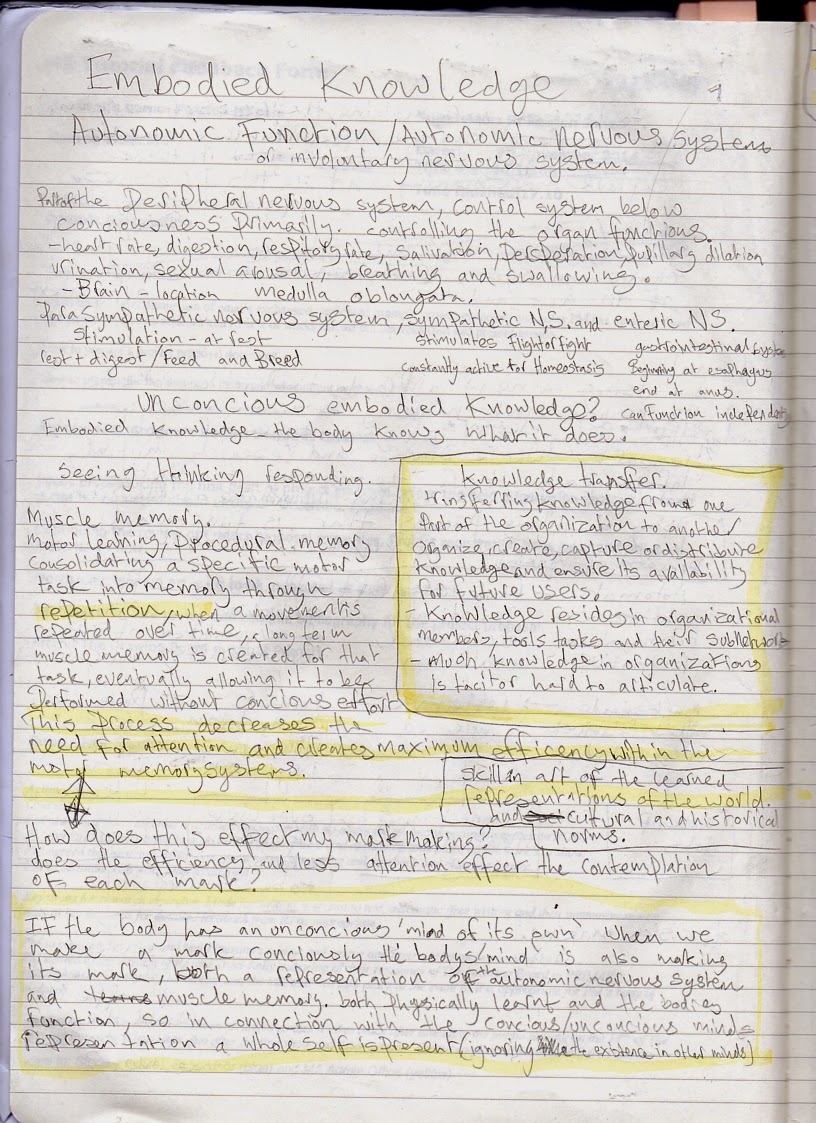 Embodied Knowledge
Autonomic Function/Autonomic nervous system
or involuntary nervous system.
Part of the Peripheral nervous system, control system below
conciousness Primarily. controlling the organ functions.
-heart rate, digestion, respitory rate, Salivation, Persperation, pupillary dilation
urination, sexual arousal, breathing and swallowing.
- Brain - location medulla oblongata.
Para Sympathetic nervous system, sympathetic N,S. and enteric NS.
Stimulation - at rest
rest + digest / Feed and Breed
stimulates flight or fight
constantly active for Homeostasis
gastrointestinal system
Beginning at esophagus
end at anus.
can Function independently
Unconcious embodied Knowledge?
Embodied Knowledge - the body knows what it does.
Seeing thinking responding.
Muscle memory.
motor learning, Procedural memory
Consolidating a specific motor
task into memory through
repetition, when a movement is
repeated over time, a long term
muscle memory is created for that
task, eventually allowing it to be
Performed without concious effort
This Process decreases the
need for attention and creates maximum efficency within the
motor memory systems.
Knowledge transfer.
transferring knowledge from one
Part of the organization to another/
organize, create, capture or distribute
Knowledge and ensure its availability
for future users.
- Knowledge resides in organizational
members, tools tasks and their subnetworks
- much knowledge in organizations
is tacit or hard to articulate.
skill in art of the learned
representations of the world.
and cultural and historical
norms.
How does this effect my mark making?
does the efficiency and less attention effect the contemplation
of each mark?
If the body has an unconcious 'mind of its own' when we
make a mark conciously the bodys 'mind' is also making
its mark, both a representation of the autonomic nervous system
and muscle memory. both Physically learnt and the bodies
function, so in connection with the concious/unconcious minds
representation a whole self is present (ignoring the existence in other minds)